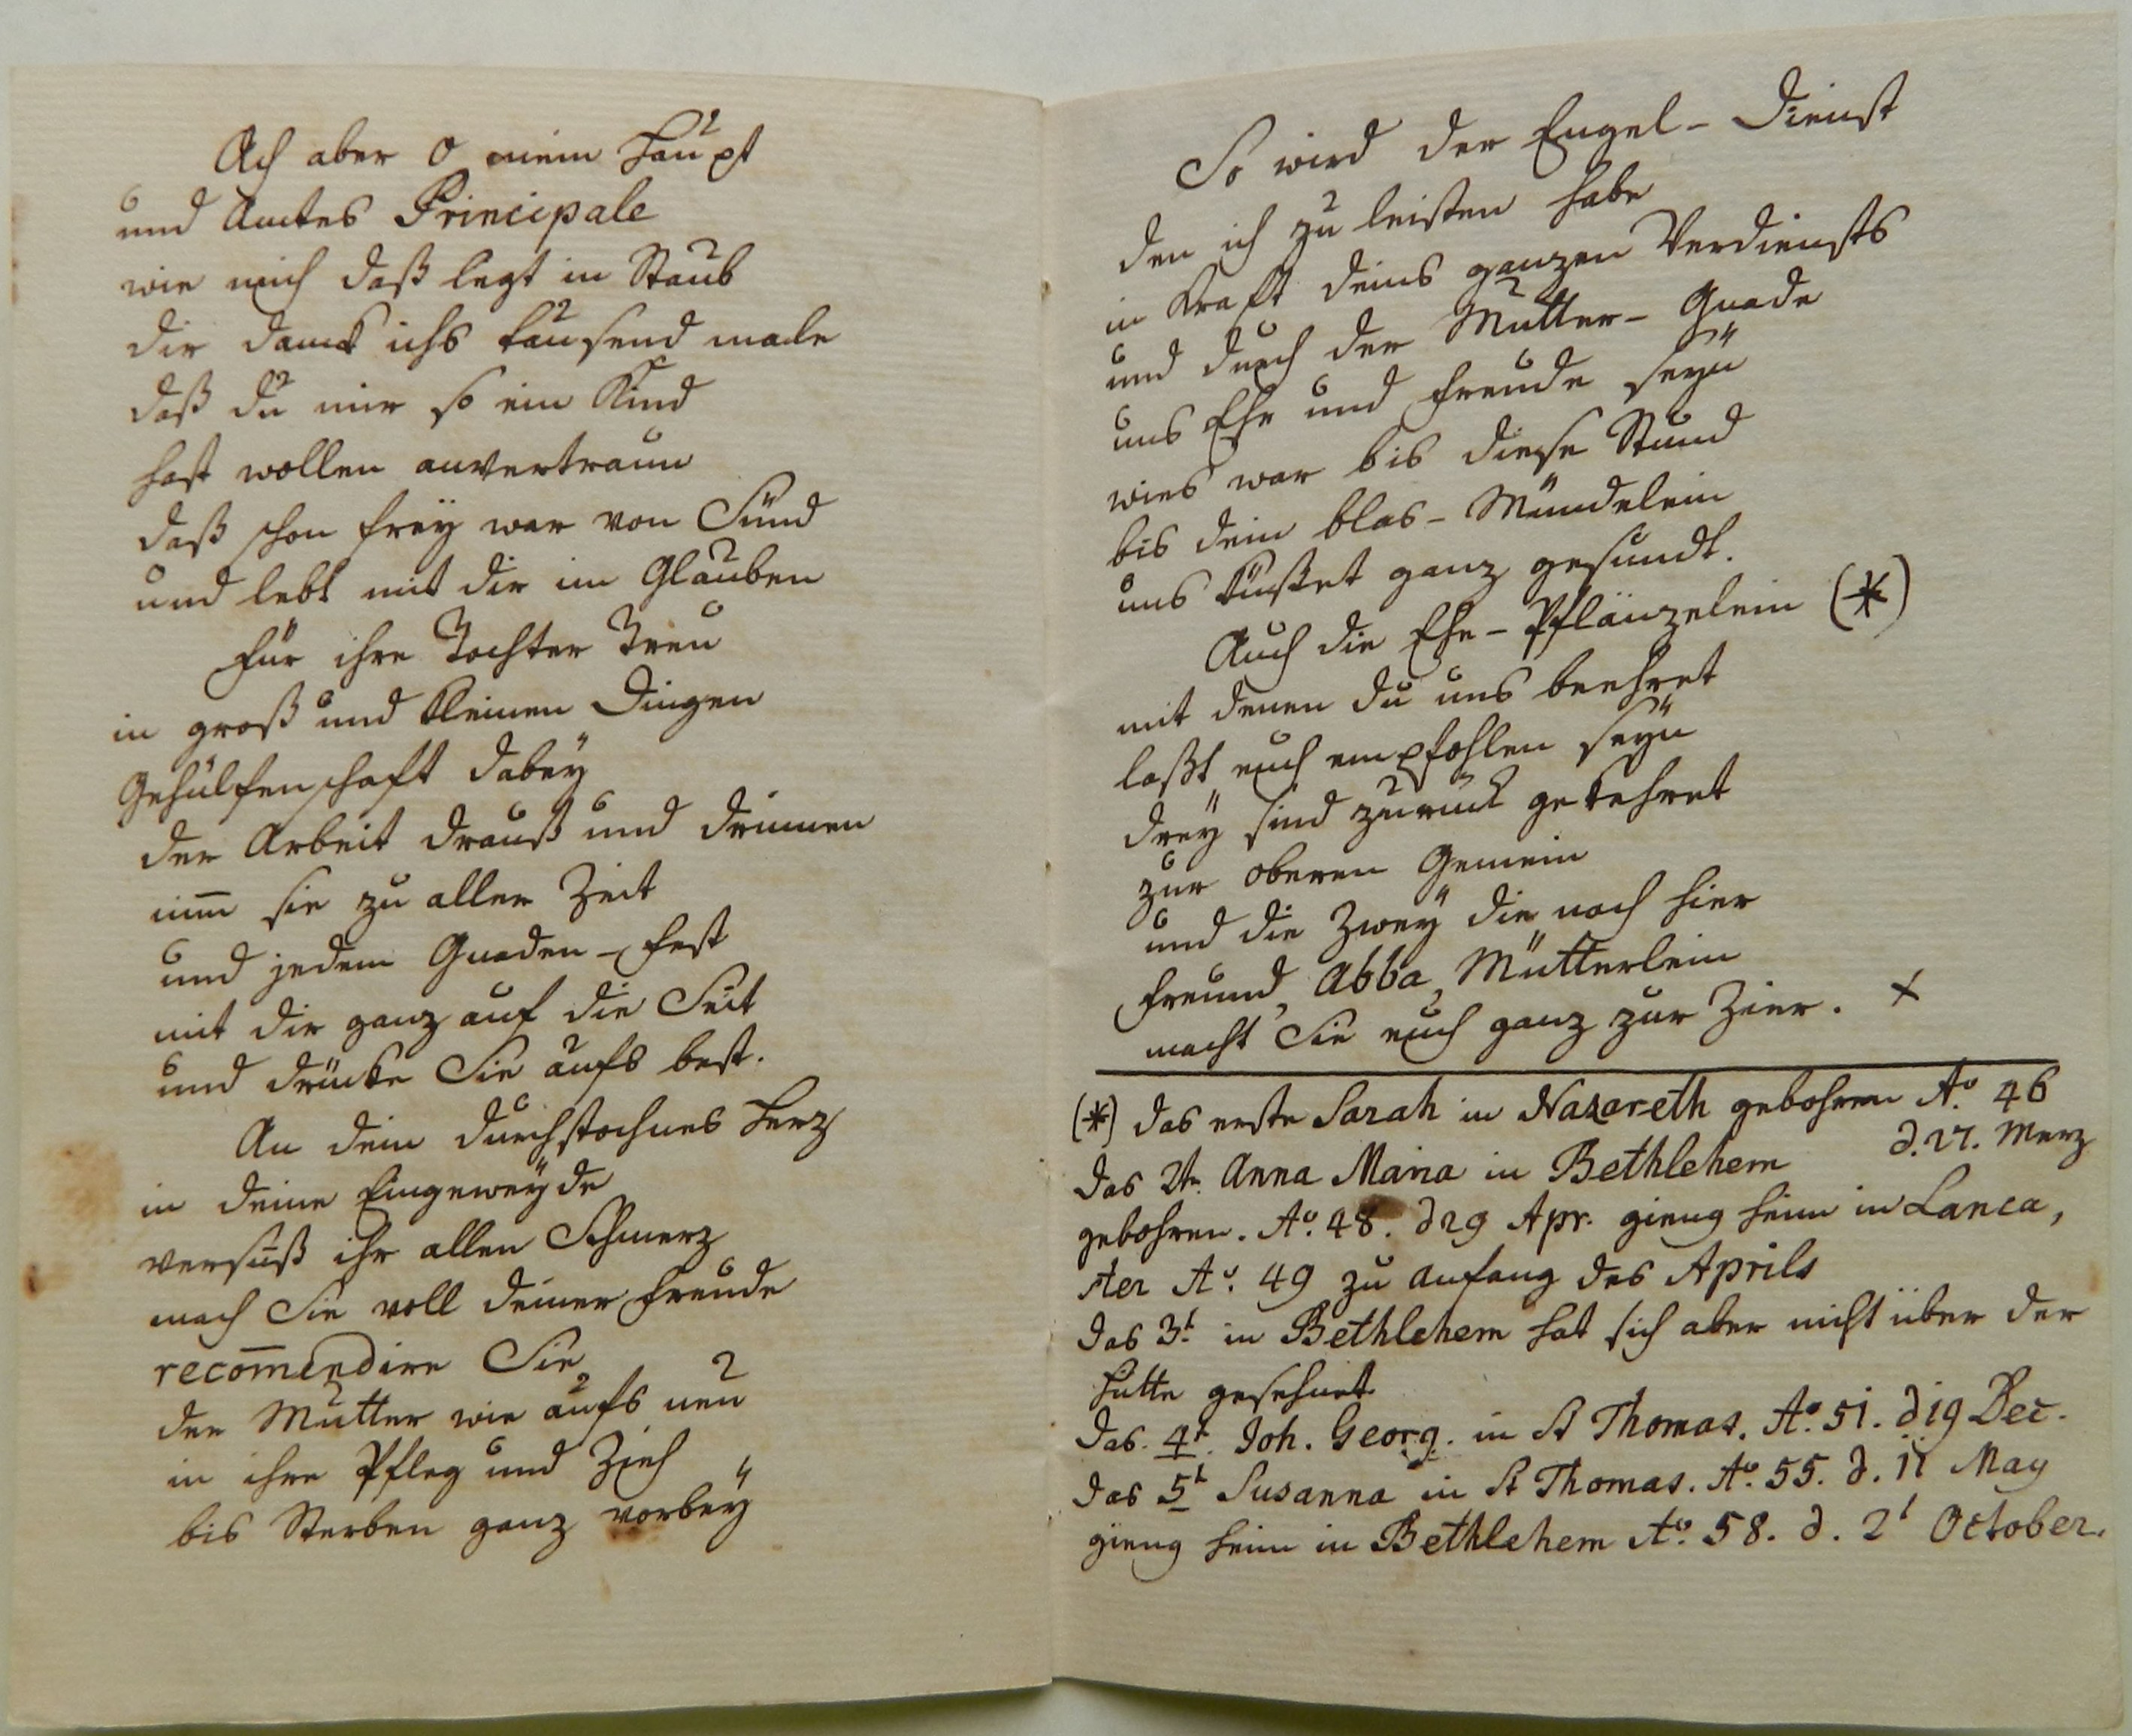 Ach aber O mein Haupt
und Amtes Principale
wie mich daß legt in Staub
dir danck ichs tausend male
daß du mir so ein Kind
hast wollen anvertraun
daß schon frey war von Sünd
und lebt mit dir im Glauben
Für ihre Tochter Treu
in groß und kleinen Dingen
Gehülfenschaft dabey
der Arbeit drauß und drinnen
nim̅ sie zu aller Zeit
und jedem Gnaden-Fest
mit dir ganz auf die Seit
und drücke Sie aufs best.
An dein durchstochnes Herz
in deine Eingeweyde
versüß ihr allen Schmerz
mach Sie voll deiner Freude
recom̅endire Sie
der Mutter wie aufs neu
in ihre Pfleg und Zieh
bis Sterben ganz vorbey
So wird der Engel-Dienst
den ich zu leisten habe
in Kraft deins ganzen Verdiensts
und durch der Mutter-Gnade
uns Ehr und Freude seyn
wies war bis diese Stund
bis dein blas-Mündelein
uns küßet ganz gesundt.
Auch die Ehe-Pflänzelein (*)
mit denen du uns beehret
laßt euch empfohlen seyn
drey sind zurück gekehret
zur oberen Gemein
und die Zwey die noch hier
Freund, Abba, Mütterlein
macht Sie euch ganz zur Zier. x
(*) das erste Sarah in Nazareth gebohren Ao. 46
d. 27. Merz
das 2te. Anna Maria in Bethlehem
gebohren. Ao. 48. d 29 Apr. gieng heim in Lanca,
ster Ao. 49 zu Anfang des Aprils
das 3t. in Bethlehem hat sich aber nicht über der
Hütte gesehnet
das. 4t. Joh. Georg. in St Thomas. Ao. 51. d 19 Dec.
das 5t Susanna in St Thomas. Ao. 55. d. 11 May
gieng heim in Bethlehem Ao. 58. d. 2t October.